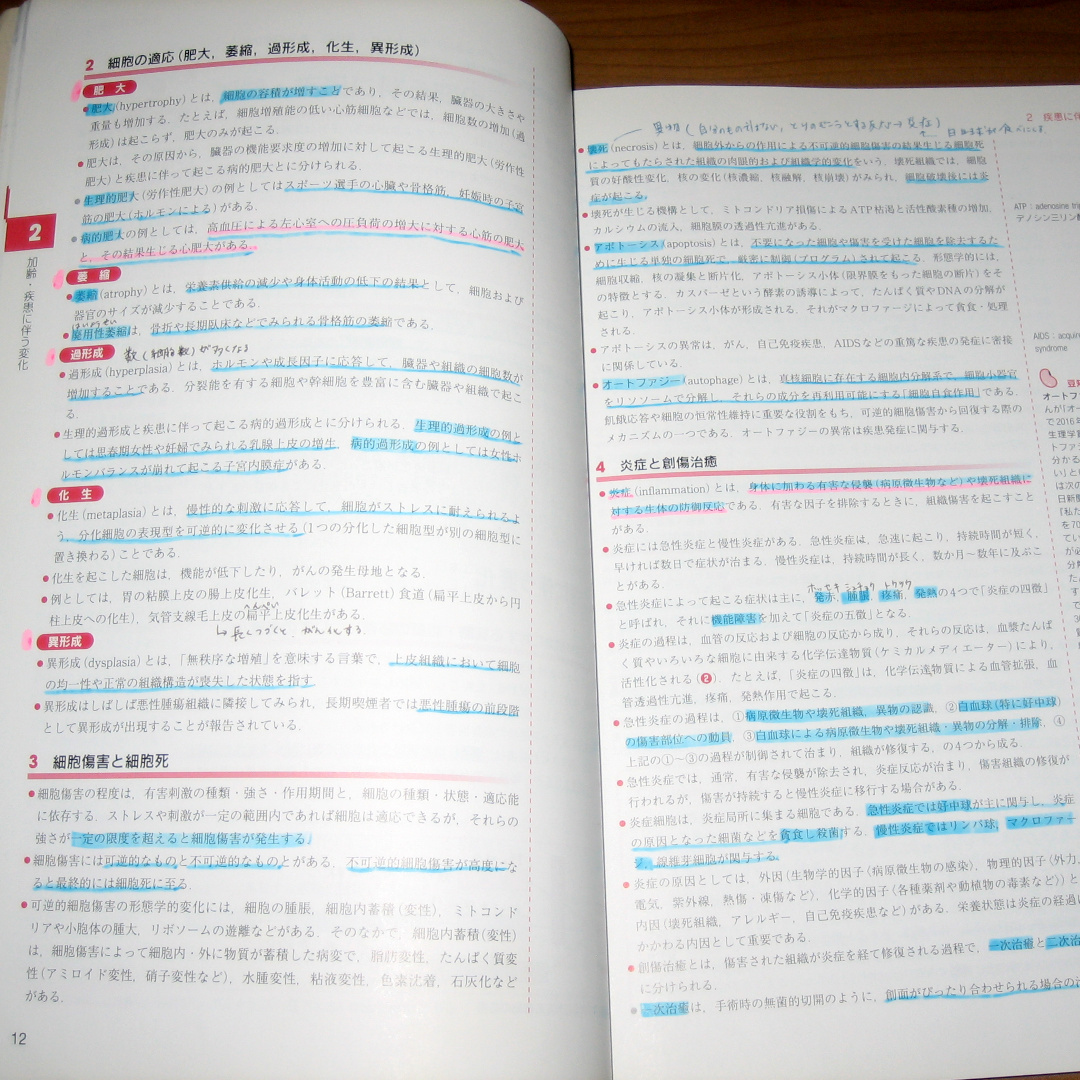 2 細胞の適応(肥大，萎縮，過形成，化生，異形成)
肥大
●肥大(hypertrophy)とは，細胞の容積が増すことであり，その結果，臓器の大きさや
重量も増加する．たとえば，細胞増殖能の低い心筋細胞などでは，細胞数の増加(過
形成)は起こらず，肥大のみが起こる．
●肥大は，その原因から，臓器の機能要求度の増加に対して起こる生理的肥大(労作性
肥大)と疾患に伴って起こる病的肥大とに分けられる．
●生理的肥大(労作性肥大)の例としてはスポーツ選手の心臓や骨格筋，妊娠時の子宮
筋の肥大(ホルモンによる)がある．
●病的肥大の例としては，高血圧による左心室への圧負荷の増大に対する心筋の肥大
と，その結果生じる心肥大がある．
萎縮
●萎縮(atrophy)とは，栄養素供給の減少や身体活動の低下の結果として，細胞および
器官のサイズが減少することである．
はいようせい
●廃用性萎縮は，骨折や長期臥床などでみられる骨格筋の萎縮である．
過形成 数(細胞数)が多くなる
●過形成(hyperplasia)とは，ホルモンや成長因子に応答して，臓器や組織の細胞数が
増加することである．分裂能を有する細胞や幹細胞を豊富に含む臓器や組織で起こ
る．
●生理的過形成と疾患に伴って起こる病的過形成とに分けられる．生理的過形成の例と
しては思春期女性や妊婦でみられる乳腺上皮の増生，病的過形成の例としては女性ホ
ルモンバランスが崩れて起こる子宮内膜症がある．
化生
●化生(metaplasia)とは，慢性的な刺激に応答して，細胞がストレスに耐えられるよ
う，分化細胞の表現型を可逆的に変化させる(1つの分化した細胞型が別の細胞型に
置き換わる)ことである．
●化生を起こした細胞は，機能が低下したり，がんの発生母地となる．
●例としては，胃の粘膜上皮の腸上皮化生，バレット(Barrett)食道(扁平上皮から円
柱上皮への化生)，気管支線毛上皮の扁平上皮化生がある．
へんぺい
↳長くつづくと，がん化する
異形成
●異形成(dysplasia)とは，「無秩序な増殖」を意味する言葉で，上皮組織において細胞
の均一性や正常の組織構造が喪失した状態を指す．
●異形成はしばしば悪性腫瘍組織に隣接してみられ，長期喫煙者では悪性腫瘍の前段階
として異形成が出現することが報告されている．
3 細胞傷害と細胞死
●細胞傷害の程度は，有害刺激の種類・強さ・作用期間と，細胞の種類・状態・適応能
に依存する．ストレスや刺激が一定の範囲内であれば細胞は適応できるが，それらの
強さが一定の限度を超えると細胞傷害が発生する．
●細胞傷害には可逆的なものと不可逆的なものとがある．不可逆的細胞傷害が高度にな
ると最終的には細胞死に至る．
●可逆的細胞傷害の形態学的変化には，細胞の腫脹，細胞内蓄積(変性)，ミトコンド
リアや小胞体の腫大，リボソームの遊離などがある．そのなかで，細胞内蓄積(変性)
は，細胞傷害によって細胞内・外に物質が蓄積した病変で，脂肪変性，たんぱく質変
性(アミロイド変性，硝子変性など)，水腫変性，粘液変性，色素沈着，石灰化など
がある．
12
2
加齢・疾患に伴う変化
2 疾患に伴
異物
●壊死(necrosis)とは，細胞外からの作用による不可逆的細胞傷害の結果生じる細胞死
によってもたらされた組織の肉眼的および組織学的変化をいう．壊死組織では，細胞
質の好酸性変化，核の変化(核濃縮，核融解，核崩壊)がみられ，細胞破壊後には炎
症が起こる．
●壊死が生じる機構として，ミトコンドリア損傷によるATP枯渇と活性酸素種の増加，
カルシウムの流入，細胞膜の透過性亢進がある．
●アポトーシス(apoptosis)とは，不要になった細胞や傷害を受けた細胞を除去するた
めに生じる単独の細胞死で，厳密に制御(プログラム)されて起こる．形態学的には，
細胞収縮，核の凝集と断片化，アポトーシス小体(限界膜をもった細胞の断片)をそ
の特徴とする．カスパーゼという酵素の誘導によって，たんぱく質やDNAの分解が
起こり，アポトーシス小体が形成される．それがマクロファージによって貪食・処理
される．
●アポトーシスの異常は，がん，自己免疫疾患，AIDSなどの重篤な疾患の発症に密接
に関係している．
●オートファジー(autophage)とは，真核細胞に存在する細胞内分解系で，細胞小器官
をリソソームで分解し，それらの成分を再利用可能にする「細胞自食作用」である．
飢餓応答や細胞の恒常性維持に重要な役割をもち，可逆的細胞傷害から回復する際の
メカニズムの一つである．オートファジーの異常は疾患発症に関与する．
4 炎症と創傷治癒
●炎症(inflammation)とは，身体に加わる有害な侵襲(病原微生物など)や壊死組織に
対する生体の防御反応である．有害な因子を排除するときに，組織傷害を起こすこと
がある．
●炎症には急性炎症と慢性炎症がある．急性炎症は，急速に起こり，持続時間が短く，
早ければ数日で症状が治まる．慢性炎症は，持続時間が長く，数か月～数年に及ぶこ
とがある．
ホッセキ シュチョウ トウツウ
●急性炎症によって起こる症状は主に，発赤，腫脹，疼痛，発熱の4つで「炎症の四徴」
と呼ばれ，それに機能障害を加えて「炎症の五徴」となる．
●炎症の過程は，血管の反応および細胞の反応から成り，それらの反応は，血漿たんぱ
く質やいろいろな細胞に由来する化学伝達物質(ケミカルメディエーター)により，
活性化される(❷)．たとえば，「炎症の四徴」は，化学伝達物質による血管拡張，血
管透過性亢進，疼痛，発熱作用で起こる．
●急性炎症の過程は，①病原微生物や壊死組織，異物の認識，②白血球(特に好中球)
の傷害部位への動員，③白血球による病原微生物や壊死組織・異物の分解・排除，④
上記の①～③の過程が制御されて治まり，組織が修復する，の4つから成る．
●急性炎症では，通常，有害な侵襲が除去され，炎症反応が治まり，傷害組織の修復が
行われるが，傷害が持続すると慢性炎症に移行する場合がある．
●炎症細胞は，炎症局所に集まる細胞である．急性炎症では好中球が主に関与し，炎症
の原因となった細菌などを貪食し殺菌する．慢性炎症ではリンパ球，マクロファー
ジ，線維芽細胞が関与する．
●炎症の原因としては，外因(生物学的因子(病原微生物の感染)，物理的因子(外力，
電気，紫外線，熱傷・凍傷など)，化学的因子(各種薬剤や動植物の毒素など))と
内因(壊死組織，アレルギー，自己免疫疾患など)がある．栄養状態は炎症の経過に
かかわる内因として重要である．
●創傷治癒とは，傷害された組織が炎症を経て修復される過程で，一次治癒と二次治
に分けられる．
●一次治癒は，手術時の無菌的切開のように，創面がぴったり合わせられる場合の治
ATP：adenosine tri
デノシン三リン酸
AIDS：acqui
syndrome
豆知
オートファ
んが(オー
で2016年
生理学
トファジ
分かる
い」と
は次の
日新
「私た
を70
てい